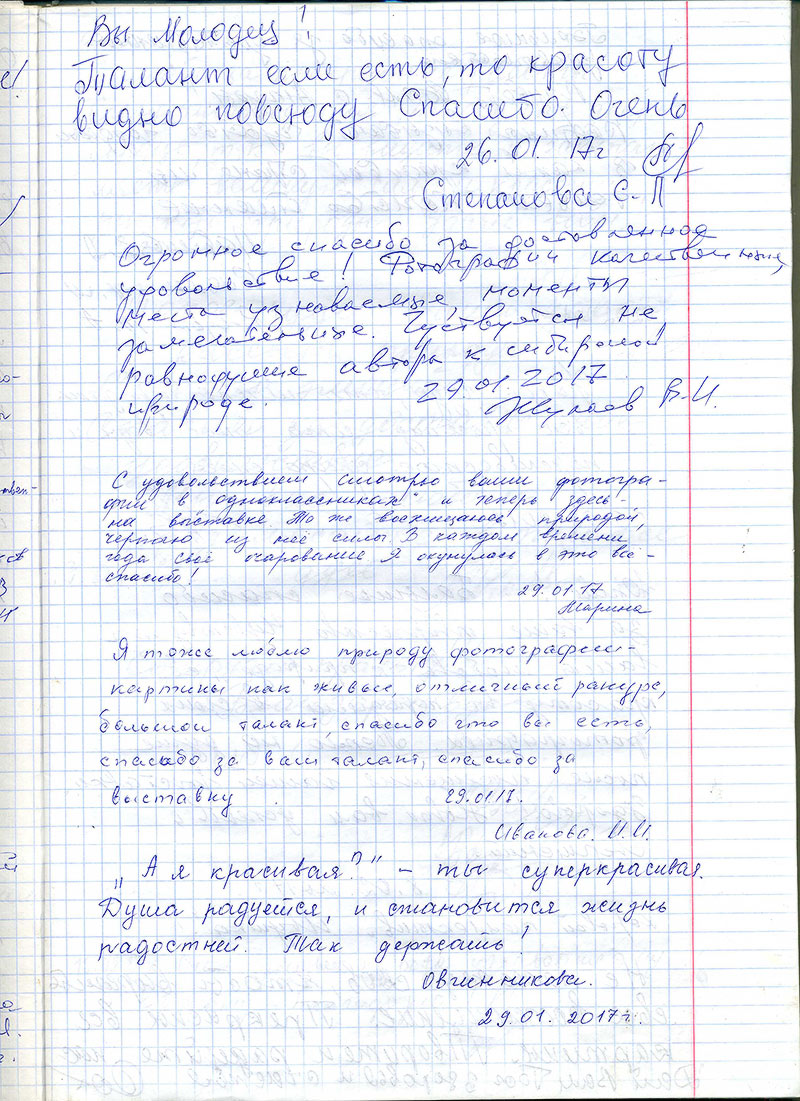 Вы Молодец!
Талант если есть, то красоту
видно повсюду Спасибо. Очень
26.01.17г
Степанова С.П
Огромное спасибо за доставленное
удовольствие! Фотографии качественные,
места узнаваемые, моменты
замечательные. Чуствуется не
равнодушие автора к сибирской
природе. 29.01.2017
В.И.
С удовольствием смотрю ваши фотогра-
фии в одноклассниках" и теперь здесь -
на выставке То же восхищаюсь природой,
черпаю из неё силы В каждом времени
года своё очарование Я окунулась в это всё -
спасибо!
29.01.17
Марина
Я тоже люблю природу фотографии-
картины как живые, отличный ракурс,
большой талант, спасибо что вы есть,
спасибо за ваш талант, спасибо за
выставку 29.01.17.
Иванова. И.И.
„А я красивая?" - ты суперкрасивая.
Душа радуется, и становится жизнь
радостней. Так держать!
Овчинникова.
29.01.2017г.